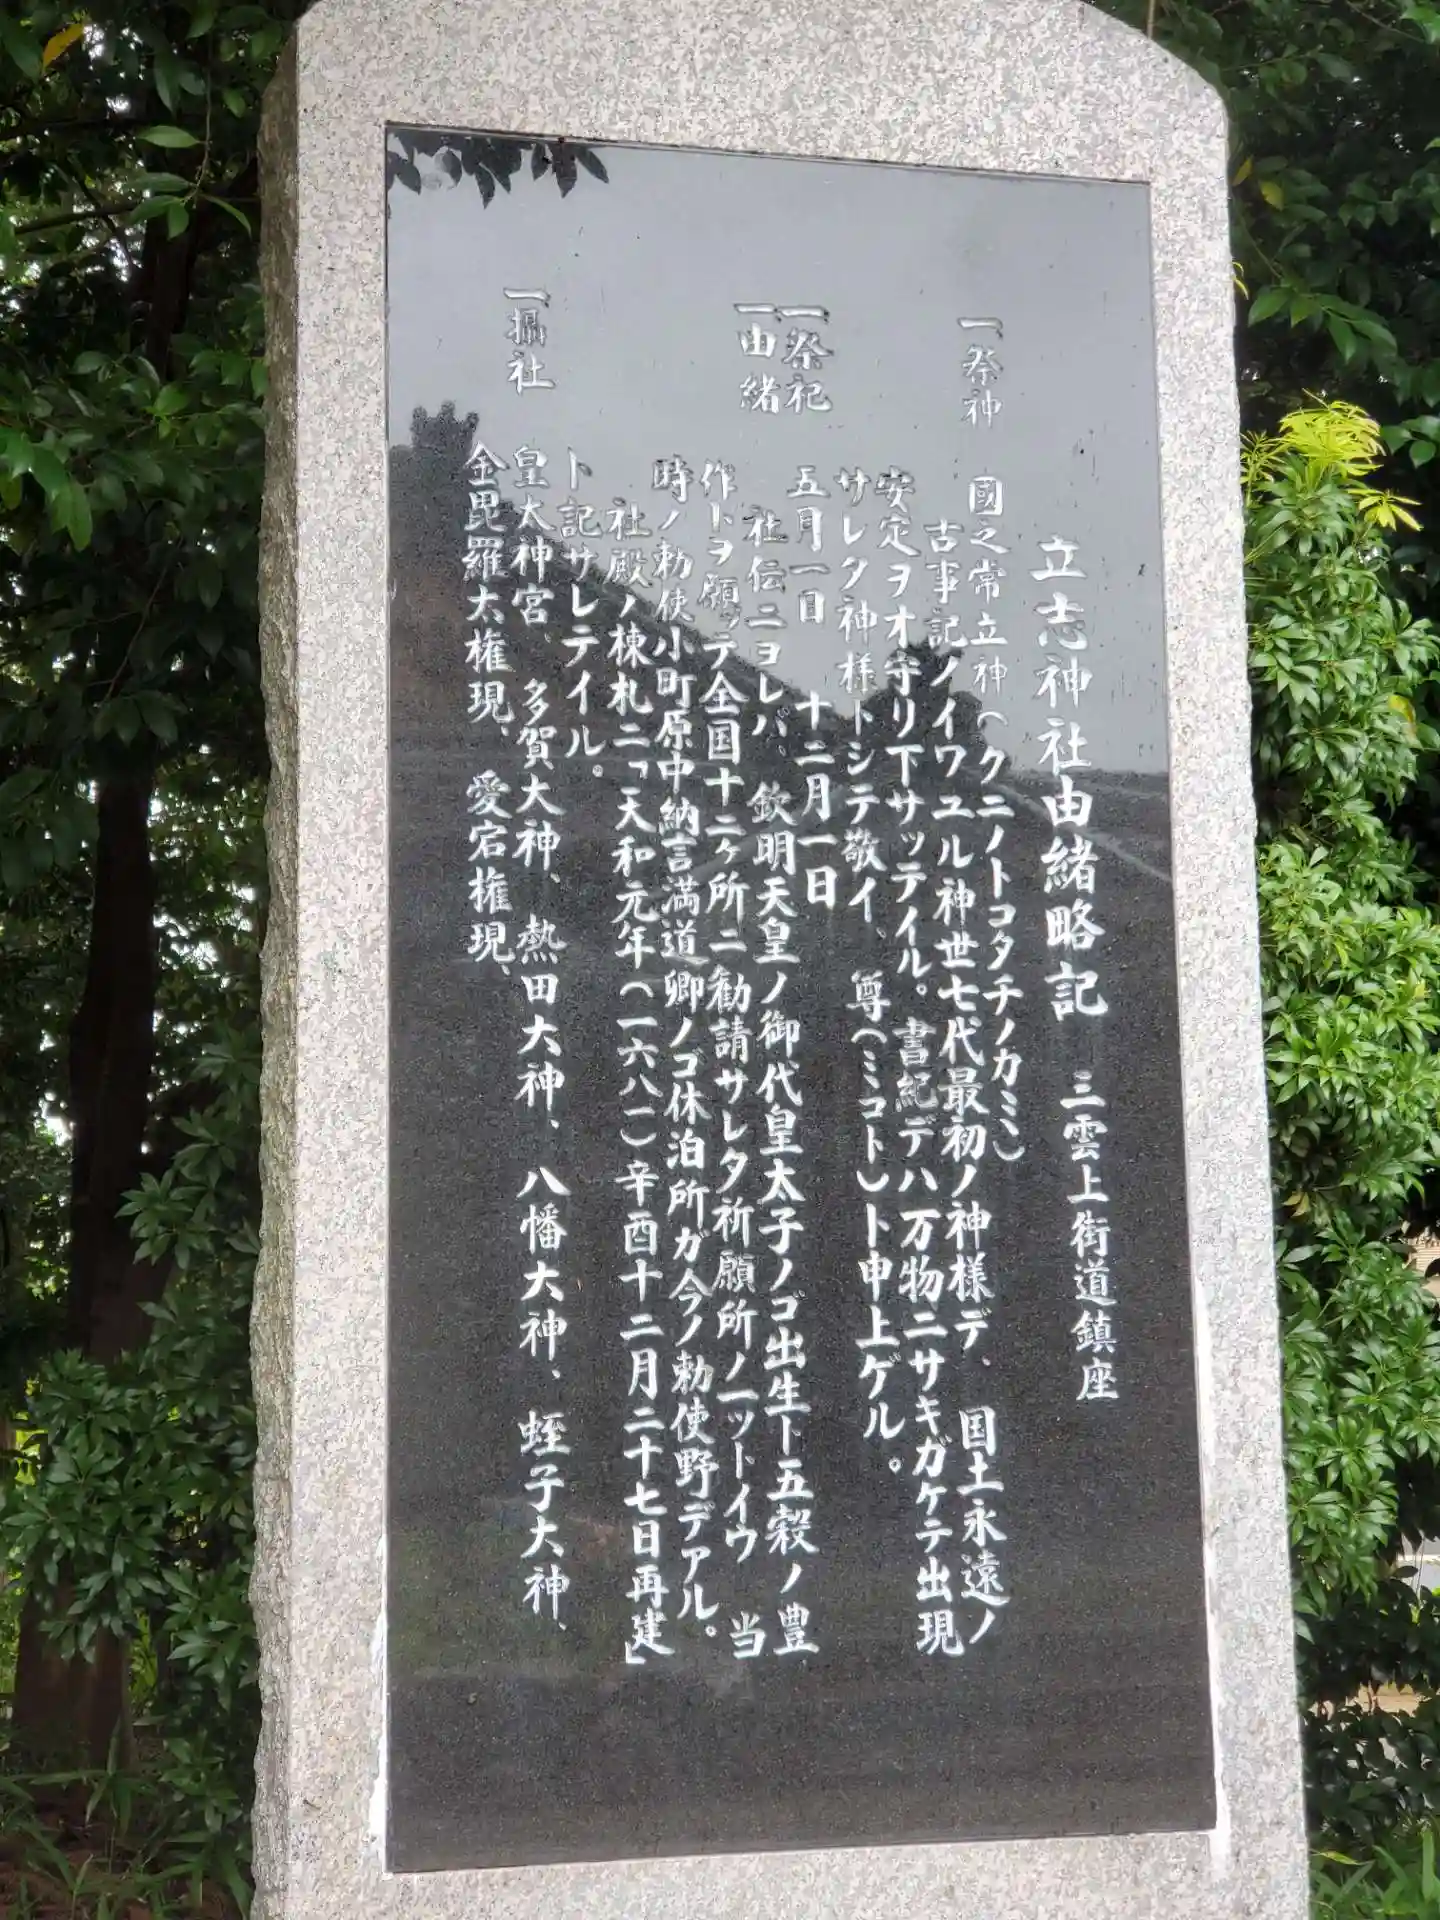 立志神社由緒略記 三雲上街道鎮座
一祭神 國之常立神(クニノトコタチノカミ)
古事記ノイワユル神世七代最初ノ神様デ、国土永遠ノ
安定ヲオ守リ下サッテイル。書紀デハ万物ニサキガケテ出現
サレタ神様トシテ敬イ、尊(ミコト)ト申上ゲル。
一祭祀 五月一日 十二月一日
一由緒 社伝ニヨレバ、欽明天皇ノ御代皇太子ノゴ出生ト五穀ノ豊
作トヲ願ッテ全国十二ヶ所ニ勧請サレタ祈願所ノ一ットイウ 当
時ノ勅使小町原中納言満道卿ノゴ休泊所ガ今ノ勅使野デアル。
社殿ノ棟札ニ「天和元年(一六八一)辛酉十二月二十七日再建」
ト記サレテイル。
一摂社 皇太神宮、多賀大神、熱田大神、八幡大神、蛭子大神、
金毘羅太権現、愛宕権現、